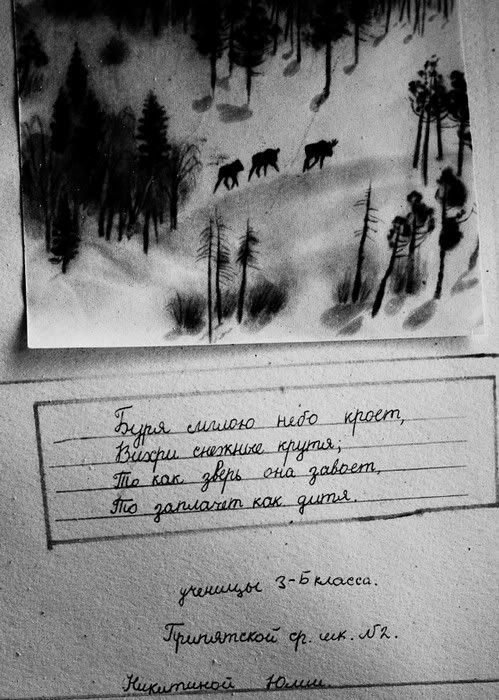 Буря мглою небо кроет,
Вихри снежные крутя;
То как зверь она завоет,
То заплачет как дитя.
ученицы 3-Б класса.
Припятской ср. шк. №2.
Никитиной Юлии.